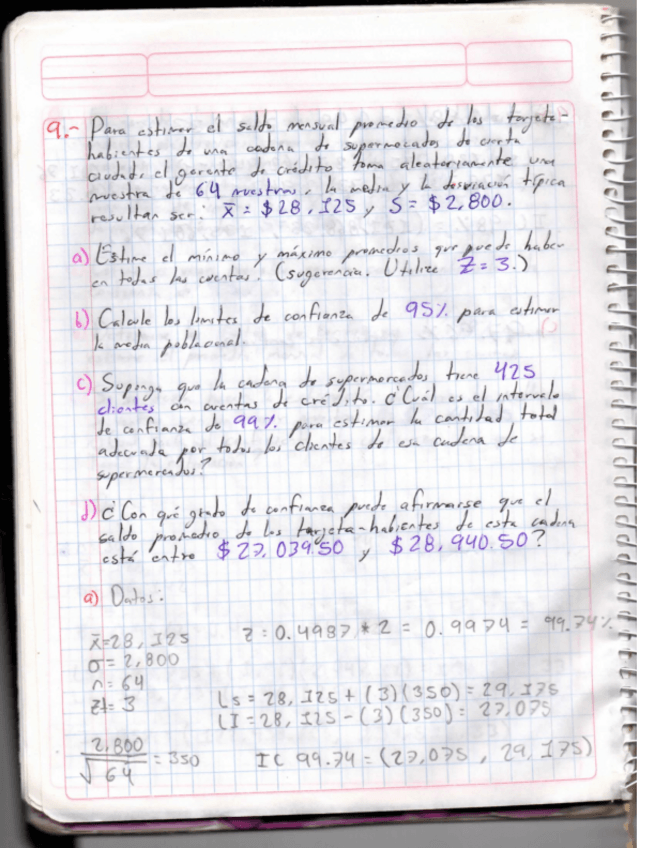 9.- Para estimar el saldo mensual promedio de los tarjeta-
habientes de una cadena de supermercados de cierta
ciudad; el gerente de crédito toma aleatoriamente una
muestra de 64 nuestras, la media y la desviación típica
resultan ser: x̄ = $28,125 y S = $2,800.
a) Estime el mínimo y máximo promedios que puede haber
en todas las cuentas. (sugerencia. Utilize Z = 3.)
b) Calcule los limites de confianza de 95% para estimar
la media poblacional.
c) Suponga que la cadena de supermercados tiene 425
clientes con cuentas de crédito. ¿Cuál es el intervalo
de confianza de 99% para estimar la cantidad total
adecuada por todos los clientes de esa cadena de
supermercados?
d) ¿Con qué grado de confianza puede afirmarse que el
saldo promedio de los tarjeta-habientes de esta cadena
está entre $27,039.50 y $28,940.50?
a) Datos:
x̄=28,125 Z = 0.4987 * 2 = 0.9974 = 99.74%
σ = 2,800
n = 64
z = 3
Ls = 28,125 + (3)(350) = 29,175
LI = 28,125 - (3)(350) = 27,075
2,800
√64 = 350 IC 99.74 = (27,075, 29,175)